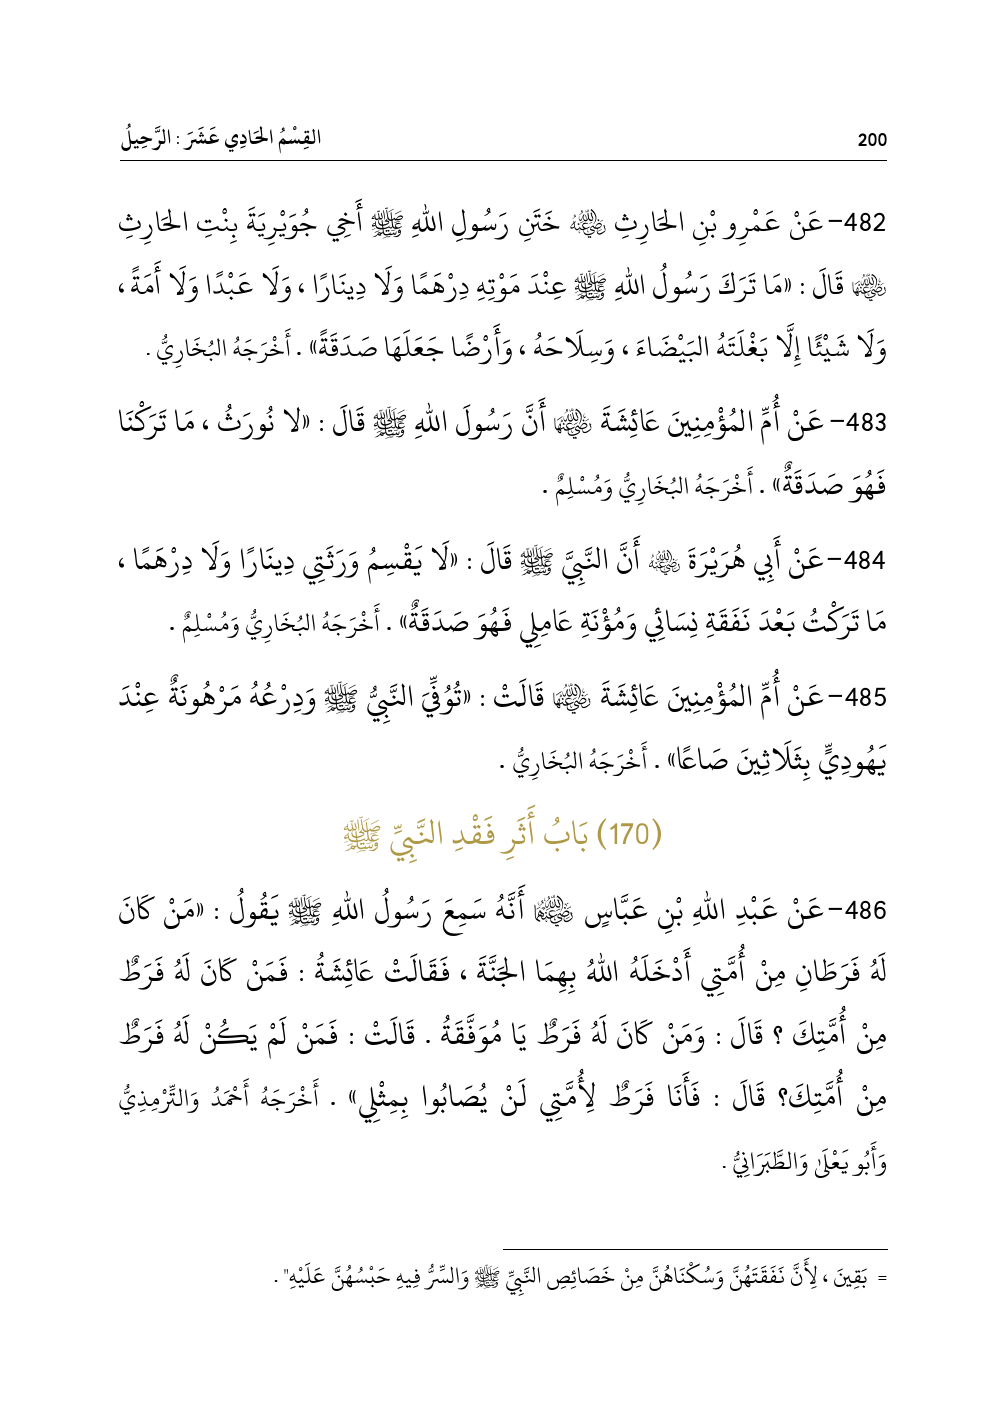 200 القِسْمُ الحَادِي عَشَرَ : الرَّحِيلُ
482- عَنْ عَمْرِو بْنِ الحَارِثِ رضي الله عنه خَتَنِ رَسُولِ اللهِ ﷺ أَخِي جُوَيْرِيَةَ بِنْتِ الحَارِثِ
رضي الله عنها قَالَ : «مَا تَرَكَ رَسُولُ اللهِ ﷺ عِنْدَ مَوْتِهِ دِرْهَمًا وَلَا دِينَارًا ، وَلَا عَبْدًا وَلَا أَمَةً ،
وَلَا شَيْئًا إِلَّا بَغْلَتَهُ البَيْضَاءَ ، وَسِلَاحَهُ ، وَأَرْضًا جَعَلَهَا صَدَقَةً» . أَخْرَجَهُ البُخَارِيُّ .
483- عَنْ أُمِّ المُؤْمِنِينَ عَائِشَةَ رضي الله عنها أَنَّ رَسُولَ اللهِ ﷺ قَالَ : «لا نُورَثُ ، مَا تَرَكْنَا
فَهُوَ صَدَقَةٌ» . أَخْرَجَهُ البُخَارِيُّ وَمُسْلِمٌ .
484- عَنْ أَبِي هُرَيْرَةَ رضي الله عنه أَنَّ النَّبِيَّ ﷺ قَالَ : «لَا يَقْسِمُ وَرَثَتِي دِينَارًا وَلَا دِرْهَمًا ،
مَا تَرَكْتُ بَعْدَ نَفَقَةِ نِسَائِي وَمُؤْنَةِ عَامِلِي فَهُوَ صَدَقَةٌ» . أَخْرَجَهُ البُخَارِيُّ وَمُسْلِمٌ .
485- عَنْ أُمِّ المُؤْمِنِينَ عَائِشَةَ رضي الله عنها قَالَتْ : «تُوُفِّيَ النَّبِيُّ ﷺ وَدِرْعُهُ مَرْهُونَةٌ عِنْدَ
يَهُودِيٍّ بِثَلَاثِينَ صَاعًا» . أَخْرَجَهُ البُخَارِيُّ .
(170) بَابُ أَثَرِ فَقْدِ النَّبِيِّ ﷺ
486- عَنْ عَبْدِ اللهِ بْنِ عَبَّاسٍ رضي الله عنهما أَنَّهُ سَمِعَ رَسُولُ اللهِ ﷺ يَقُولُ : «مَنْ كَانَ
لَهُ فَرَطَانِ مِنْ أُمَّتِي أَدْخَلَهُ اللهُ بِهِمَا الجَنَّةَ ، فَقَالَتْ عَائِشَةُ : فَمَنْ كَانَ لَهُ فَرَطٌ
مِنْ أُمَّتِكَ ؟ قَالَ : وَمَنْ كَانَ لَهُ فَرَطٌ يَا مُوَفَّقَةُ . قَالَتْ : فَمَنْ لَمْ يَكُنْ لَهُ فَرَطٌ
مِنْ أُمَّتِكَ؟ قَالَ : فَأَنَا فَرَطٌ لِأُمَّتِي لَنْ يُصَابُوا بِمِثْلِي» . أَخْرَجَهُ أَحْمَدُ وَالتِّرْمِذِيُّ
وَأَبُو يَعْلَىٰ وَالطَّبَرَانِيُّ .
= بَقِينَ ، لِأَنَّ نَفَقَتَهُنَّ وَسُكْنَاهُنَّ مِنْ خَصَائِصِ النَّبِيِّ ﷺ وَالسِّرُّ فِيهِ حَبْسُهُنَّ عَلَيْهِ" .